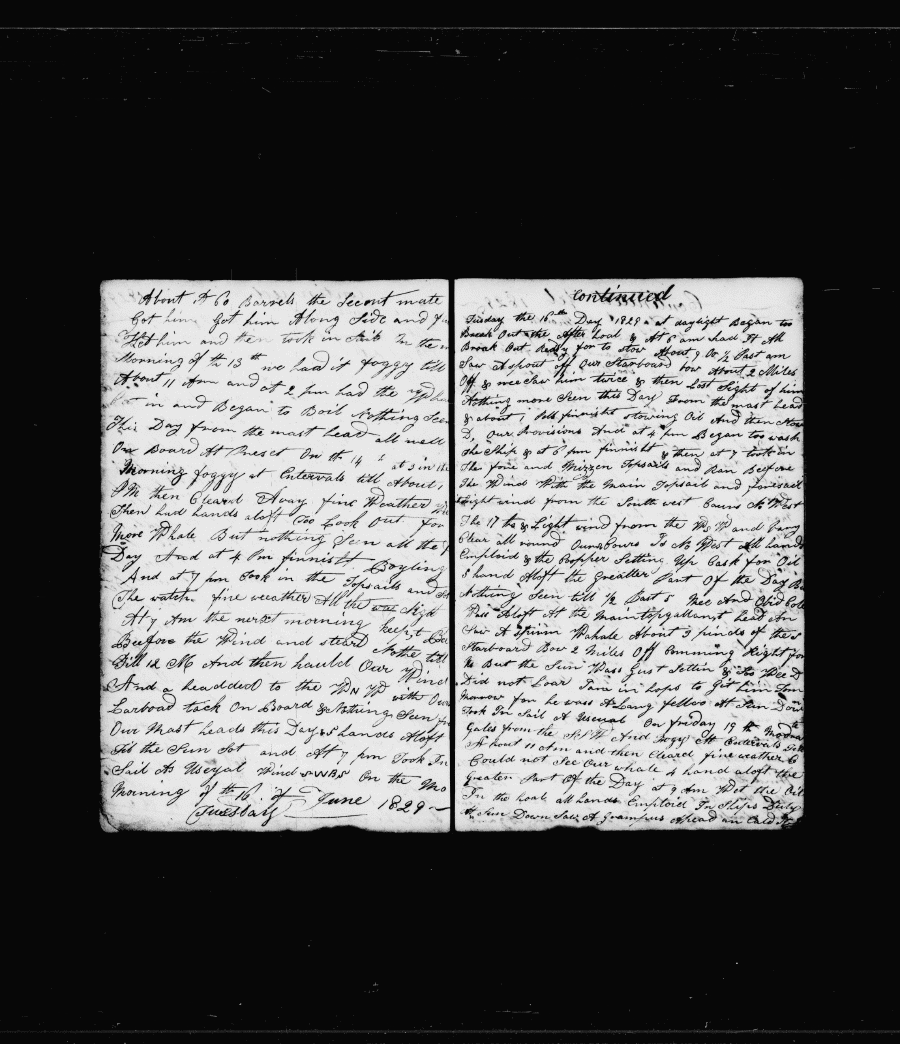 About A 60 Barrels the Secont mate
Got him Got him Along Side and
him and then took in Sail In the
Morning of th 13 th we laid it foggy till
About 11 Am and at 2 pm had the
in and Began to Boil Nothing Seen
This Day from the mast head all well
On Board At Preset On th 14 at 3 in the
Morning foggy at Entervals till About 1
PM then Cleard Away fine Weather
Then had hands aloft Too Look Out for
More Whale But nothing Seen all the
Day And at 4 Pm finnisht Boyling
And at 7 pm Took in the Topsails and
The watch fine weather All the Night
At 7 Am the nexst morning keept
Beefore the Wind and steard Nothe till
Till 12 M And then hauld Our Wind
And a headded to the WN W with Our
Larboad tack On Board & Nothing Seen from
Our Mast heads this Day 5 hands Aloft
Till the Sun Set and At 7 pm Took In
Sail As Useyal Wind SWBS On the Mo
Morning of th 16 of June 1829
Tuesday
Continued
Tusday the 16th Day 1829 at daylight Began too
Break Out the After hoal & At 8 am had It All
Broak Out Redy for to Stow About 9 Or 1/2 Past am
Saw A Spout off Our Starboard bow About 2 Miles
Off & wee Saw him twice & then Lost Sight of him
Nothing more Seen this Day From the mast head
& about 1 PM finnisht stowing Oil And then Stow
D, Our Provisions And at 4 pm Began too wash
The Ship & at 6 pm finnisht & then at 7 took in
The fore and Mizzen Topsails and Ran Beefore
The Wind With the Main Topsail and foresail
Light wind from the Southwest Cours N West
The 17 th & Light wind from the W S W and
Clear all round Ours Cours Is N West All hands
Emploid & the Copper Setting Up Cask for Oil
5 hand Aloft the Greatter Part Of the Day
Nothing Seen till 1/2 Past 5 Mee And Obid
Was Aloft At the Maintopgallanst head An
Saw A Sprim Whale About 3 pinds of the
Starboard Bow 2 Miles Off Comming Right for
Us But the Sun Wass Gust Settin & So Wee D
Did not Loar In hops to Git him Tom
Morrow for he was A Lang fellow At Sun Down
Took In Sail A Useual On friday 19 th
Gales from the And Fogy At Entervals
About 11 Am and then Cleard fine weather
Could not See Our whale 4 hand aloft the
Greaten Part Of the Day at 9 Am Wet the Oil
In the hoal all hands Emploid In Ships Duty
At Sun Down Saw A Grampus Ahead